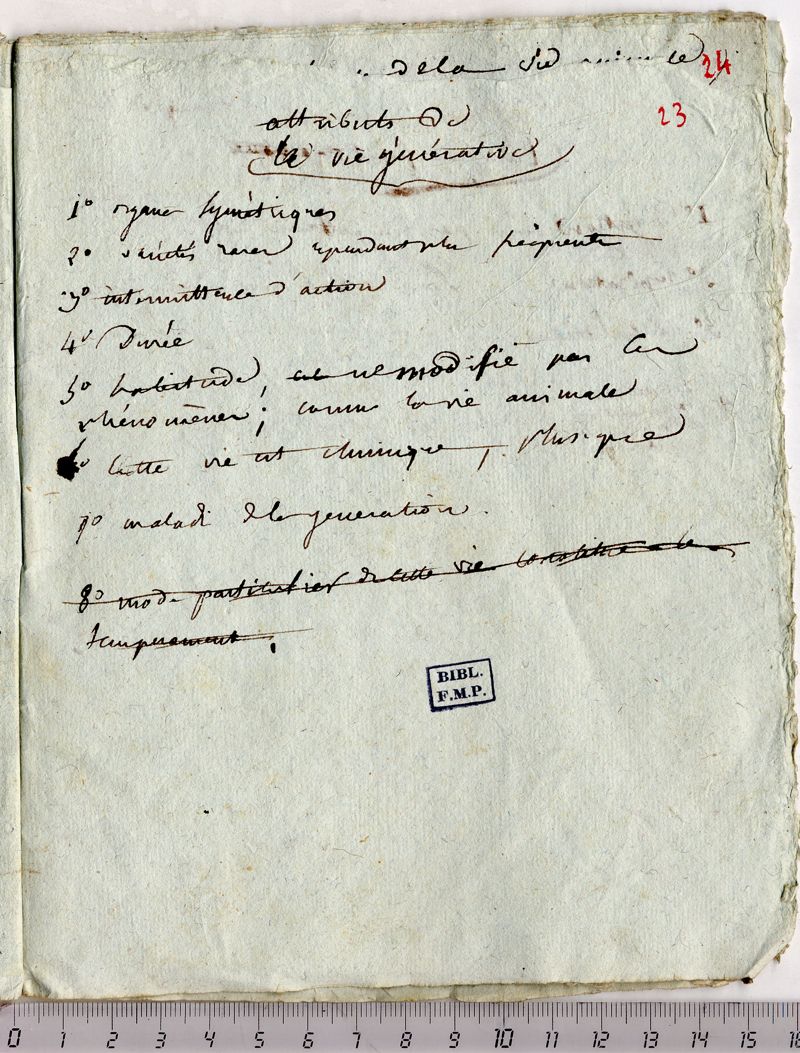 de la vie animale 24
23
attributs de
la vie générative
1º organes symétriques
2º variétés rares cependant plus fréquente
3º intermittence d'action
4º Durée
5º habitude, modifié par les
phénomènes; comme la vie animale
6º Cette vie est chimique, plusque
7º maladi de la generation.
8º mode particulier de cette vie constitue le
temperament.
BIBL.
F.M.P.
0 1 2 3 4 5 6 7 8 9 10 11 12 13 14 15 16